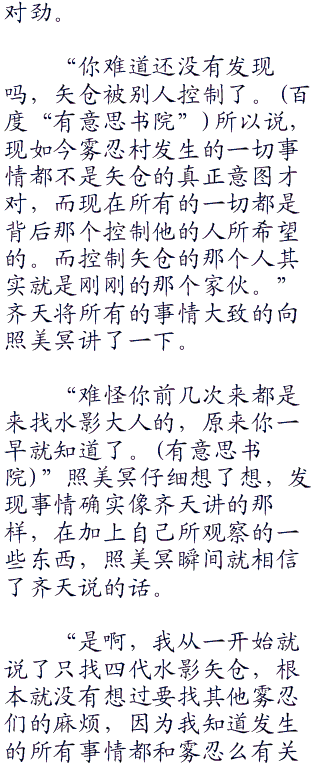 对劲。
“你难道还没有发现
吗，矢仓被别人控制了。(百
度“有意思书院”)所以说，
现如今雾忍村发生的一切事
情都不是矢仓的真正意图才
对，而现在所有的一切都是
背后那个控制他的人所希望
的。而控制矢仓的那个人其
实就是刚刚的那个家伙。”
齐天将所有的事情大致的向
照美冥讲了一下。
“难怪你前几次来都是
来找水影大人的，原来你一
早就知道了。(有意思书
院)”照美冥仔细想了想，发
现事情确实像齐天讲的那
样，在加上自己所观察的一
些东西，照美冥瞬间就相信
了齐天说的话。
“是啊，我从一开始就
说了只找四代水影矢仓，根
本就没有想过要找其他雾忍
们的麻烦，因为我知道发生
的所有事情都和雾忍么有关